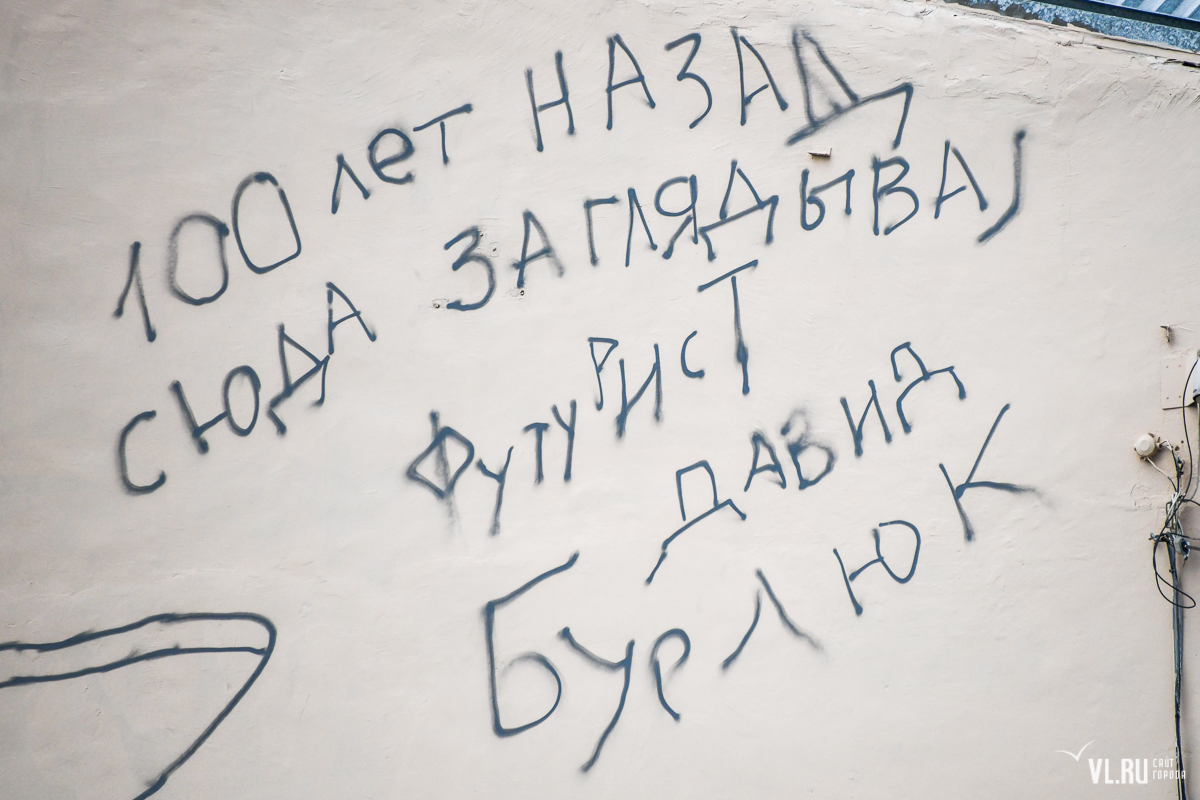 100 лет НАЗАД
СЮДА ЗАГЛЯДЫВАЛ
ФУТУРИСТ
ДАВИД
БУРЛЮК
VL.RU САЙТ ГОРОДА